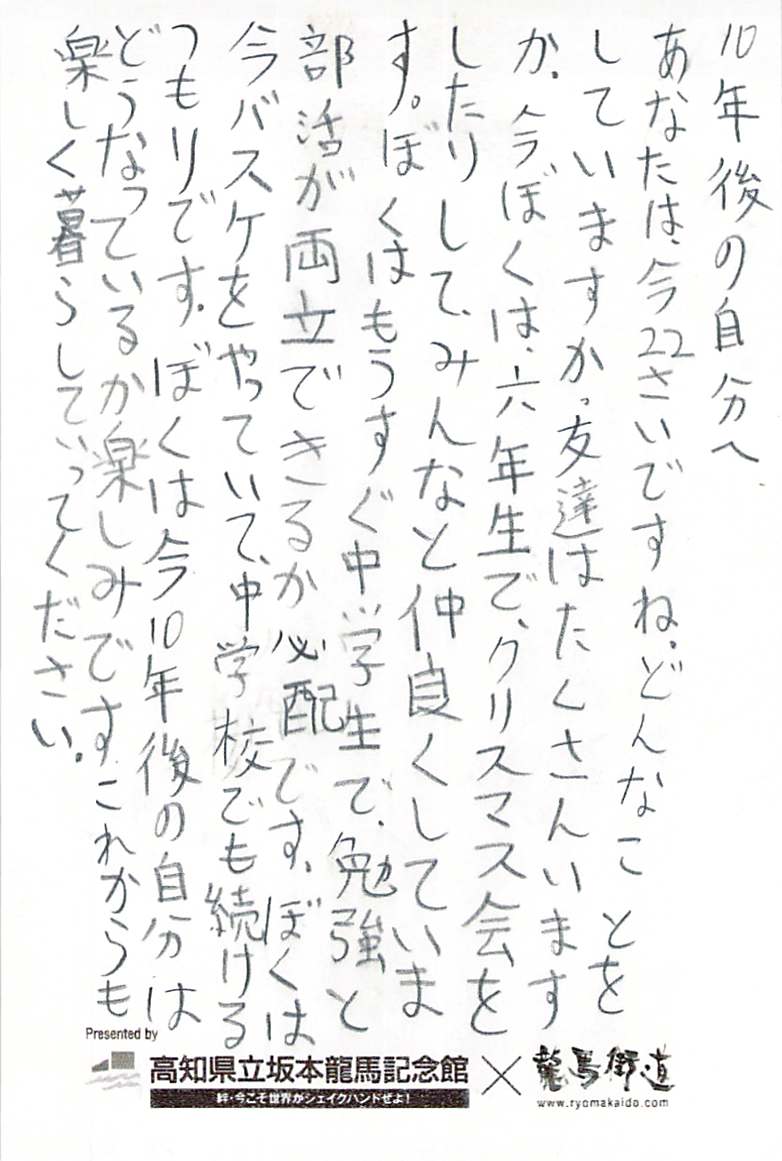 10年後の自分へ
あなたは、今22さいですね。どんなことを
していますか。友達はたくさんいます
か。今ぼくは、六年生で、クリスマス会を
したりして、みんなと仲良くしていま
す。ぼくはもうすぐ中学生で、勉強と
部活が両立できるか心配です。ぼくは
今バスケをやっていて、中学校でも続ける
つもりです。ぼくは今10年後の自分は
どうなっているか楽しみですこれからも
楽しく暮らしていってください。
Presented by
高知県立坂本龍馬記念館
絆・今こそ世界がシェイクハンドぜよ!
×
龍馬街道
www.ryomakaido.com